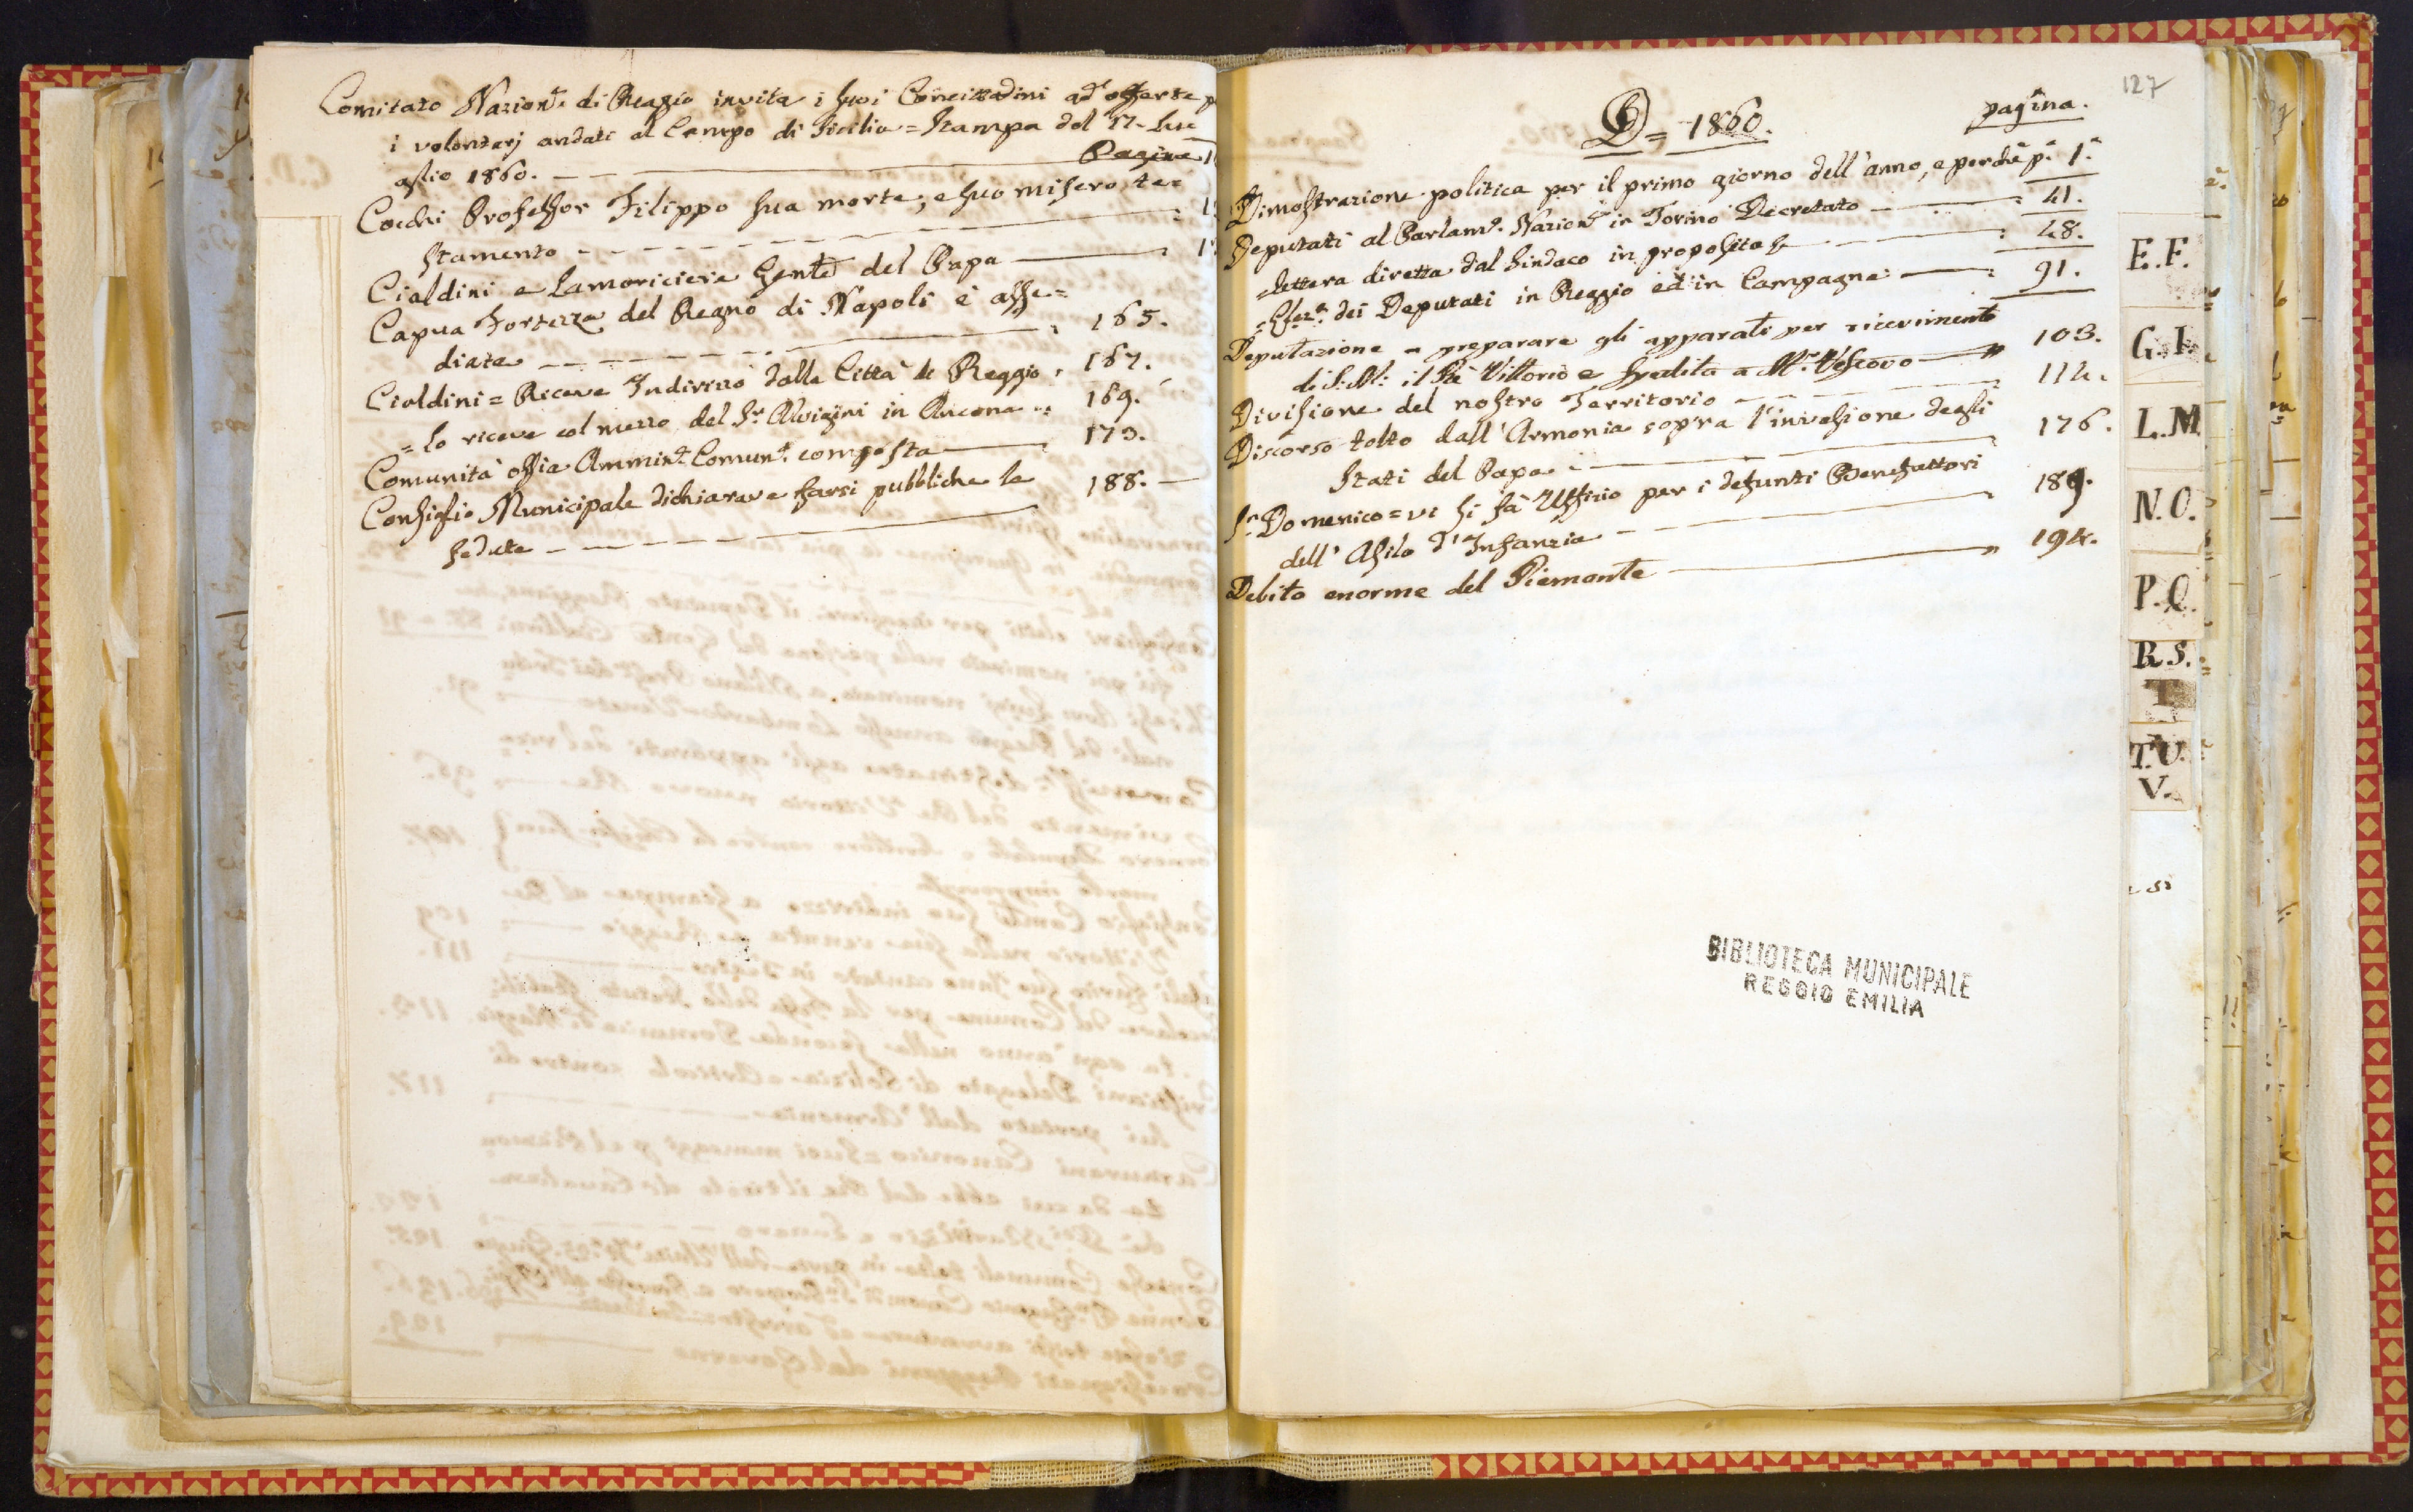 Comitato Nazion.e di Reggio invita i suoi Concittadini ad offerte p
i volontarj andati al Campo di Sicilia = Stampa del 17. Lu=
glio 1860. — Pagina 1
Cocchi Professor Filippo sua morte, e suo misero te=
stamento —
Cialdini e Lamoriciere Gente del Papa —
Capua Fortezza del Regno di Napoli è asse=
diata — 165.
Cialdini = Riceve Indirizzo dalla Città di Reggio 167.
= Lo riceve col mezzo del Sr. Alvigini in Ancona 169.
Comunità ossia Ammin.e Comun.e composta — 173.
Consiglio Municipale dichiarava farsi pubbliche le
sedute — 188. —
127
D = 1860. pagina.
Dimostrazione politica per il primo giorno dell'anno, e perchè p.a 1.a
Deputati al Parlam.o Nazion.e in Torino Decretato — 41.
= Lettera diretta dal Sindaco in proposito — 48.
dei Deputati in Reggio ed in Campagna — 91.
Deputazione a preparare gli apparati per ricevimento
di S: M: il Rè Vittorio e spedita a M.r Vescovo — 103.
Divisione del nostro Territorio — 114.
Discorso tolto dall'Armonia sopra l'invasione degli
Stati del Papa — 176.
S.n Domenico = vi si fà Uffizio per i defunti Benefattori
dell'Asilo d'Infanzia — 189.
Debito enorme del Piemonte — 194.
E.F.
G.I.
L.M
N.O.
P.Q.
R.S.
T.U.
V.
BIBLIOTECA MUNICIPALE
REGGIO EMILIA